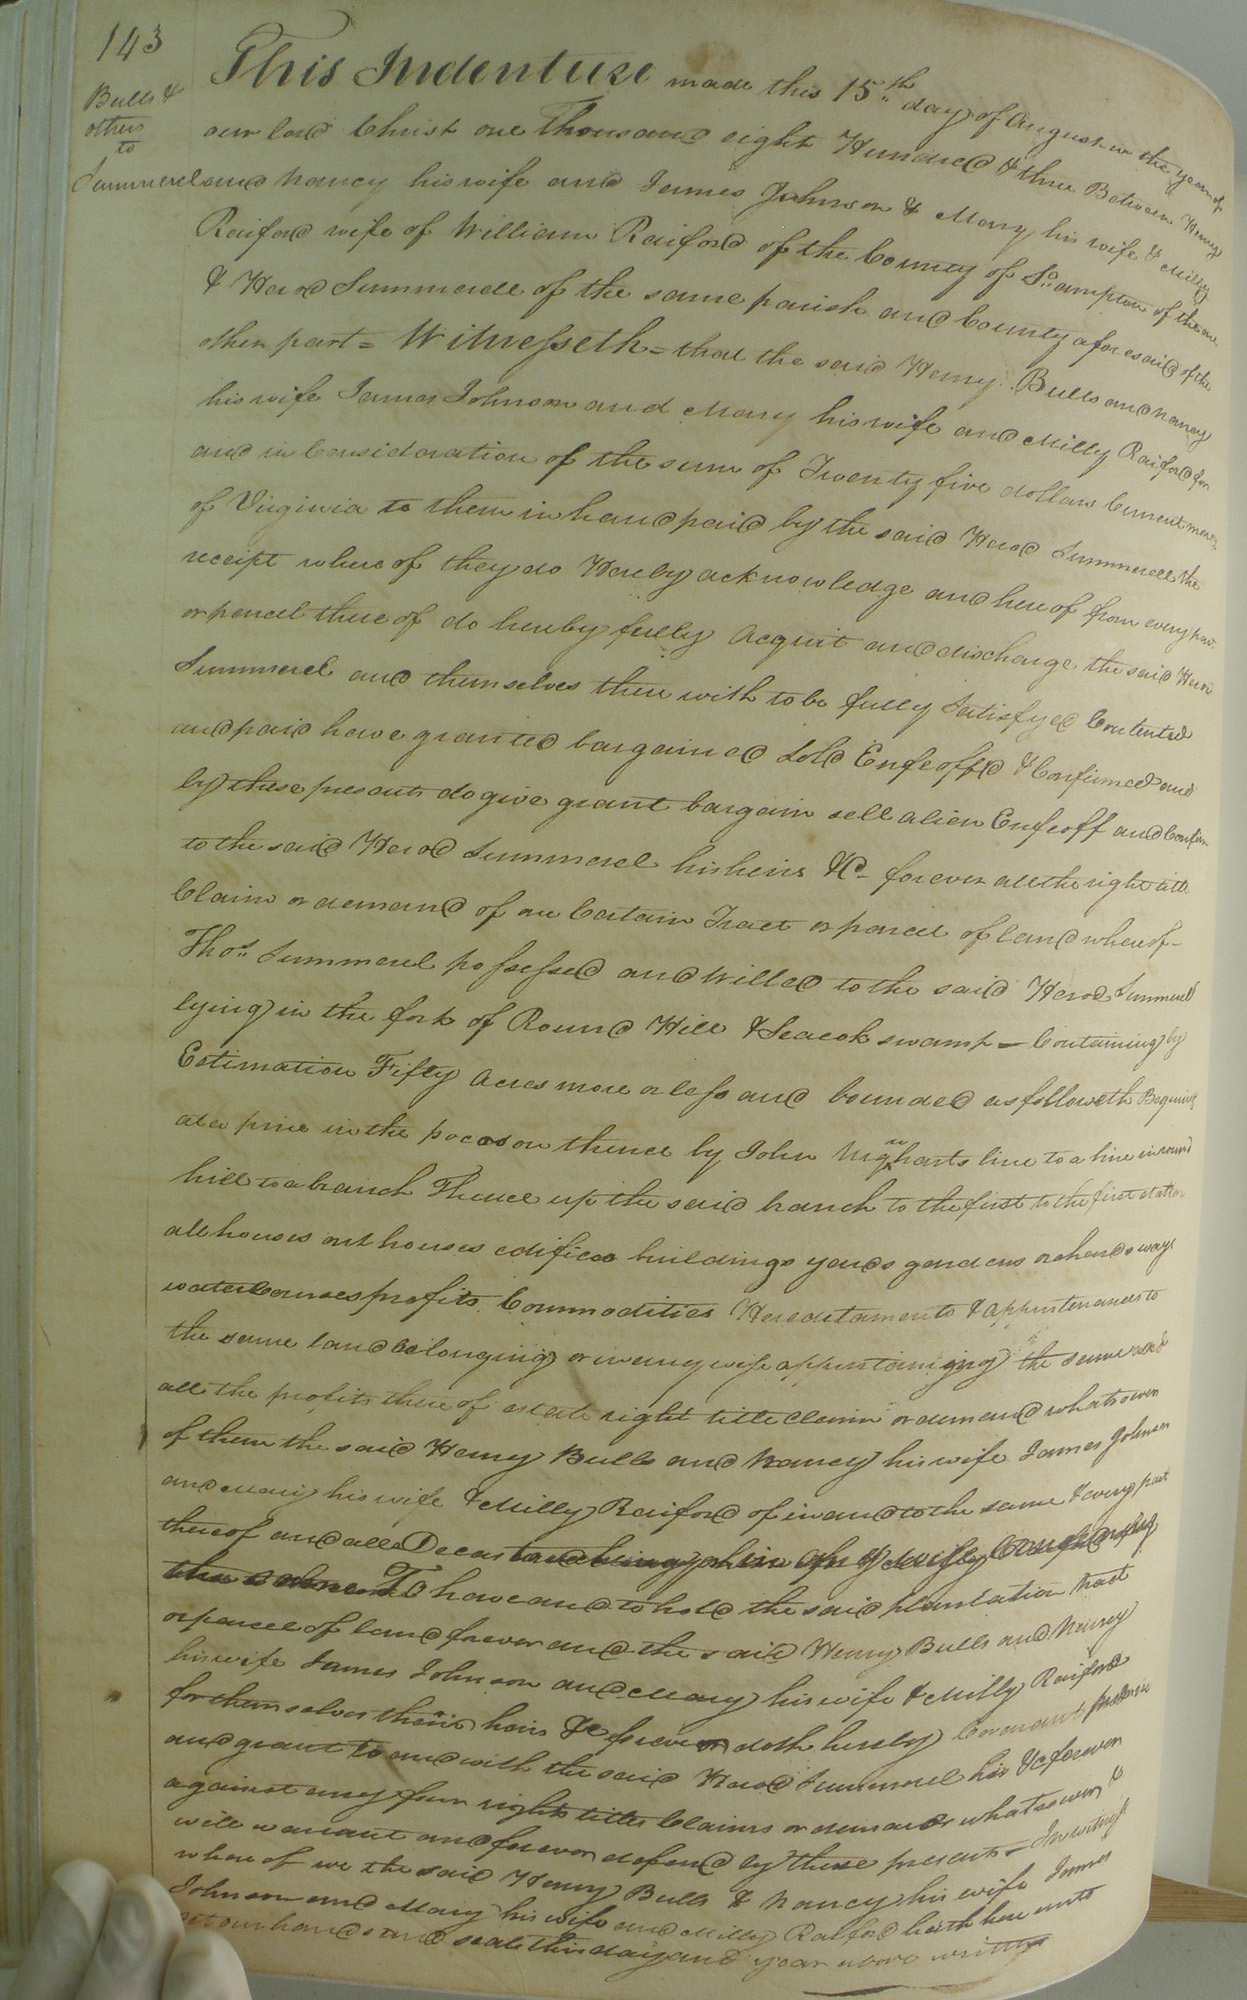 143
Bulls &
others
to
Summerel
This Indenture made this 15th day of August in the year of
our lord Christ one Thousand eight Hundred & three Between Henry
and Nancy his wife and James Johnson & Mary his wife & Milly
Raiford wife of William Raiford of the County of So.ampton of the one
& Herod Summerell of the same parish and County aforesaid of the
other part = Witnesseth = that the said Henry Bulls and Nancy
his wife James Johnson and Mary his wife and Milly Raiford for
and in Consideration of the sum of Twenty five dollars Current money
of Virginia to them in hand paid by the said Herod Summerell the
receipt where of they do Hereby acknowledge and here of from every part
or parcel there of do hereby fully Acquit and discharge the said Herod
Summerel and themselves there with to be fully Satisfyed Contented
and paid have granted bargained Sold Enfeoff'd & Confirmed and
by these presents do give grant bargain sell alien Enfeoff and Confirm
to the said Herod Summerel his heirs &C forever all the right title
Claim or demand of one Certain Tract or parcel of land where of
Thos. Summerel possessed and Willed to the said Herod Summerel
lying in the fork of Round Hill & Seacok swamp = Containing by
Estimation Fifty Acres more or less and bounded as followeth Begining
at a pine in the pocoson thence by John line to a line in round
hill to a branch Thence up the said branch to the first to the first station
all houses out houses edifices buildings yards gardens orchards ways
water Courses profits Commodities Hereditaments & appurtenances to
the same land belonging or in any wise appertaining the same and
all the profits there of estate right title Claim or demand whatsoever
of them the said Henry Bulls and Nancy his wife James Johnson
and Mary his wife & Milly Raiford of in and to the same & every part
thereof and all Deeds
To have and to hold the said plantation tract
or parcel of land forever and the said Henry Bulls and Nancy
his wife James Johnson and Mary his wife & Milly Raiford
for themselves their heirs &c forever doth hereby Covenant
and grant to and with the said Herod Summerel his &c forever
against any right title Claims or demands whatsoever &
will warrant and forever defend by these presents = In witness
where of we the said Henry Bulls & Nancy his wife James
Johnson and Mary his wife and Milly Raiford hath here unto
set our hands and seals this day and year above written